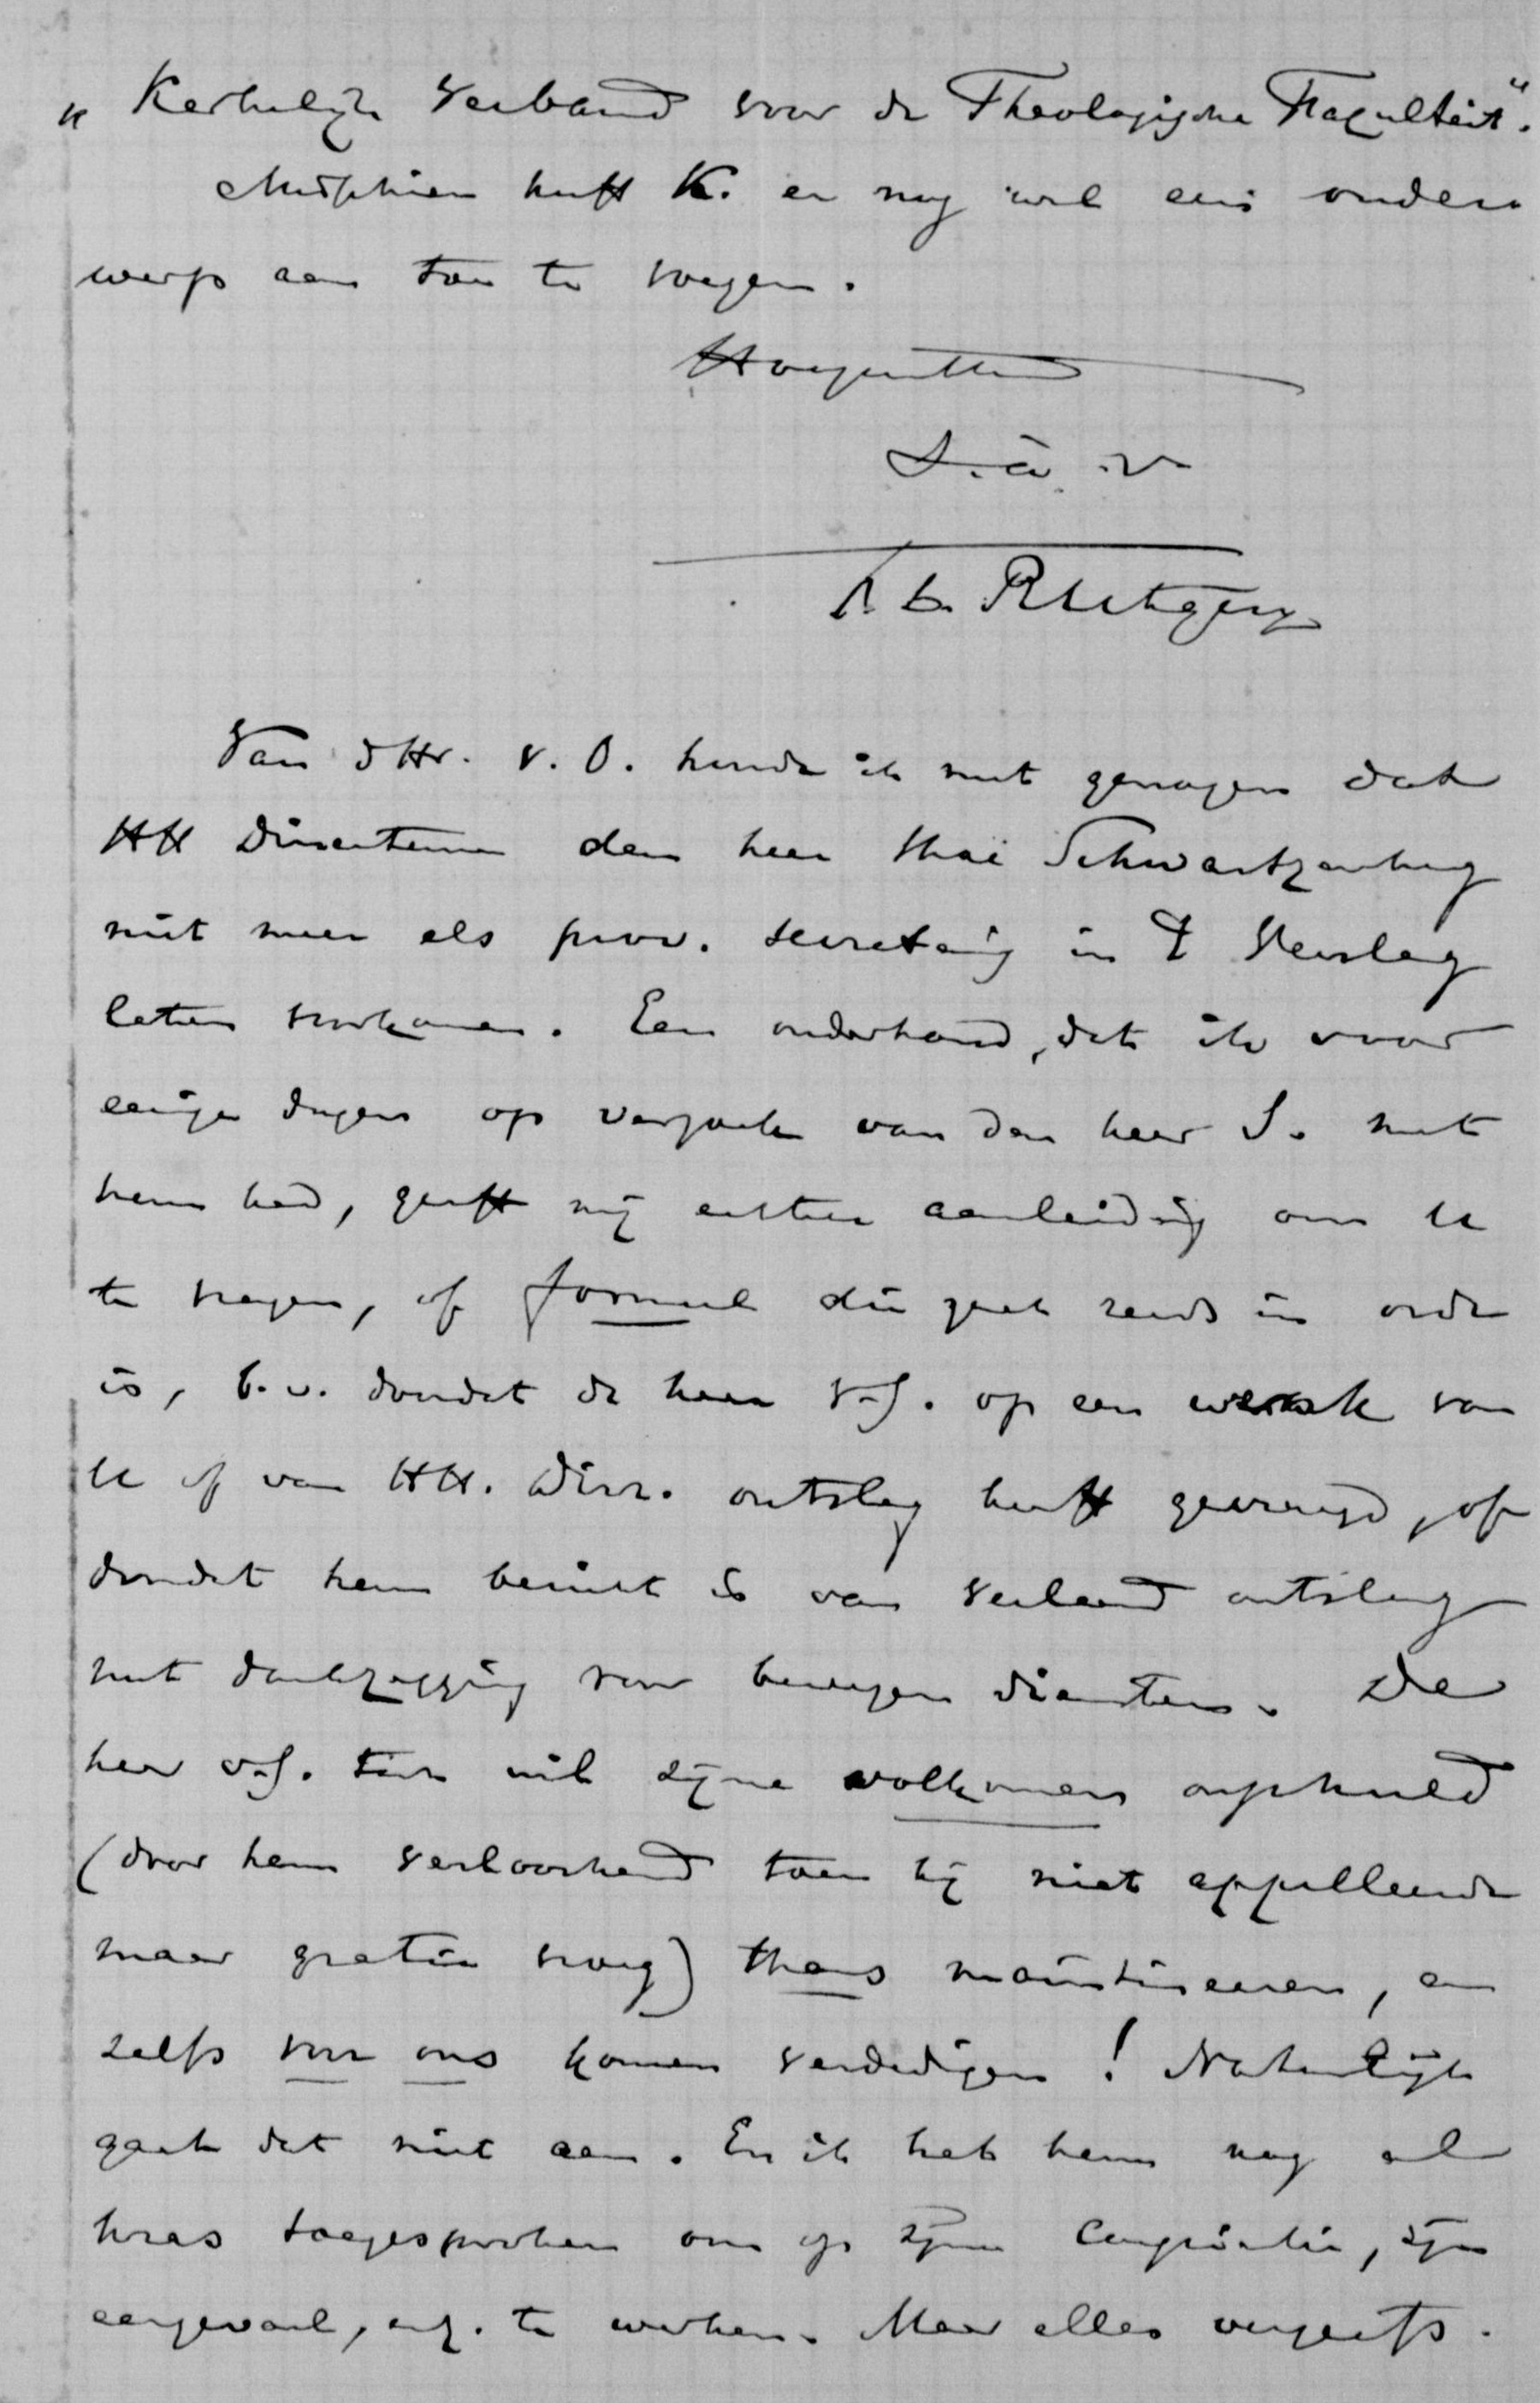 „Kerkelijk Verband voor de Theologische Faculteit".
Misschien heeft K. er nog wel een onder-
werp aan toe te voegen.
Hoogachtend
t. à. v.
F. L. Rutgers
Van dHr. v. O. hoorde ik met genoegen dat
HH Directeuren den heer thoe Schwartzenberg
niet meer als prov. secretaris in 't Verslag
laten voorkomen. Een onderhoud, dat ik voor
eenige dagen op verzoek van den heer S. met
hem had, geeft mij echter aanleiding om U
te vragen, of formeel die zaak reeds in orde
is, b.v. doordat de heer v. S. op een wenk van
U of van HH. Dirr. ontslag heeft gevraagd, of
doordat hem bericht is van verleend ontslag
met dankzegging voor bewezen diensten. De
heer v. S. toch wil zijne volkomen onschuld
(door hem verloochend toen hij niet appelleerde
maar gratie vroeg) thans maintineeren, en
zelfs voor ons komen verdedigen! Natuurlijk
gaat dat niet aan. En ik heb hem nog al
kras toegesproken om op zijn conscientie, zijn
eergevoel, enz. te werken. Maar alles vergeefs.